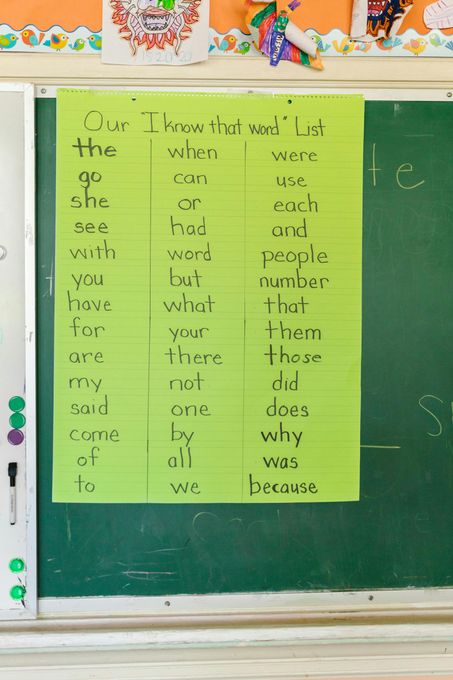 Our "I know that word" List
the when were
go can use
she or each
see had and
with word people
you but number
have what that
for your them
are there those
my not did
said one does
come by why
of all was
to we because
te